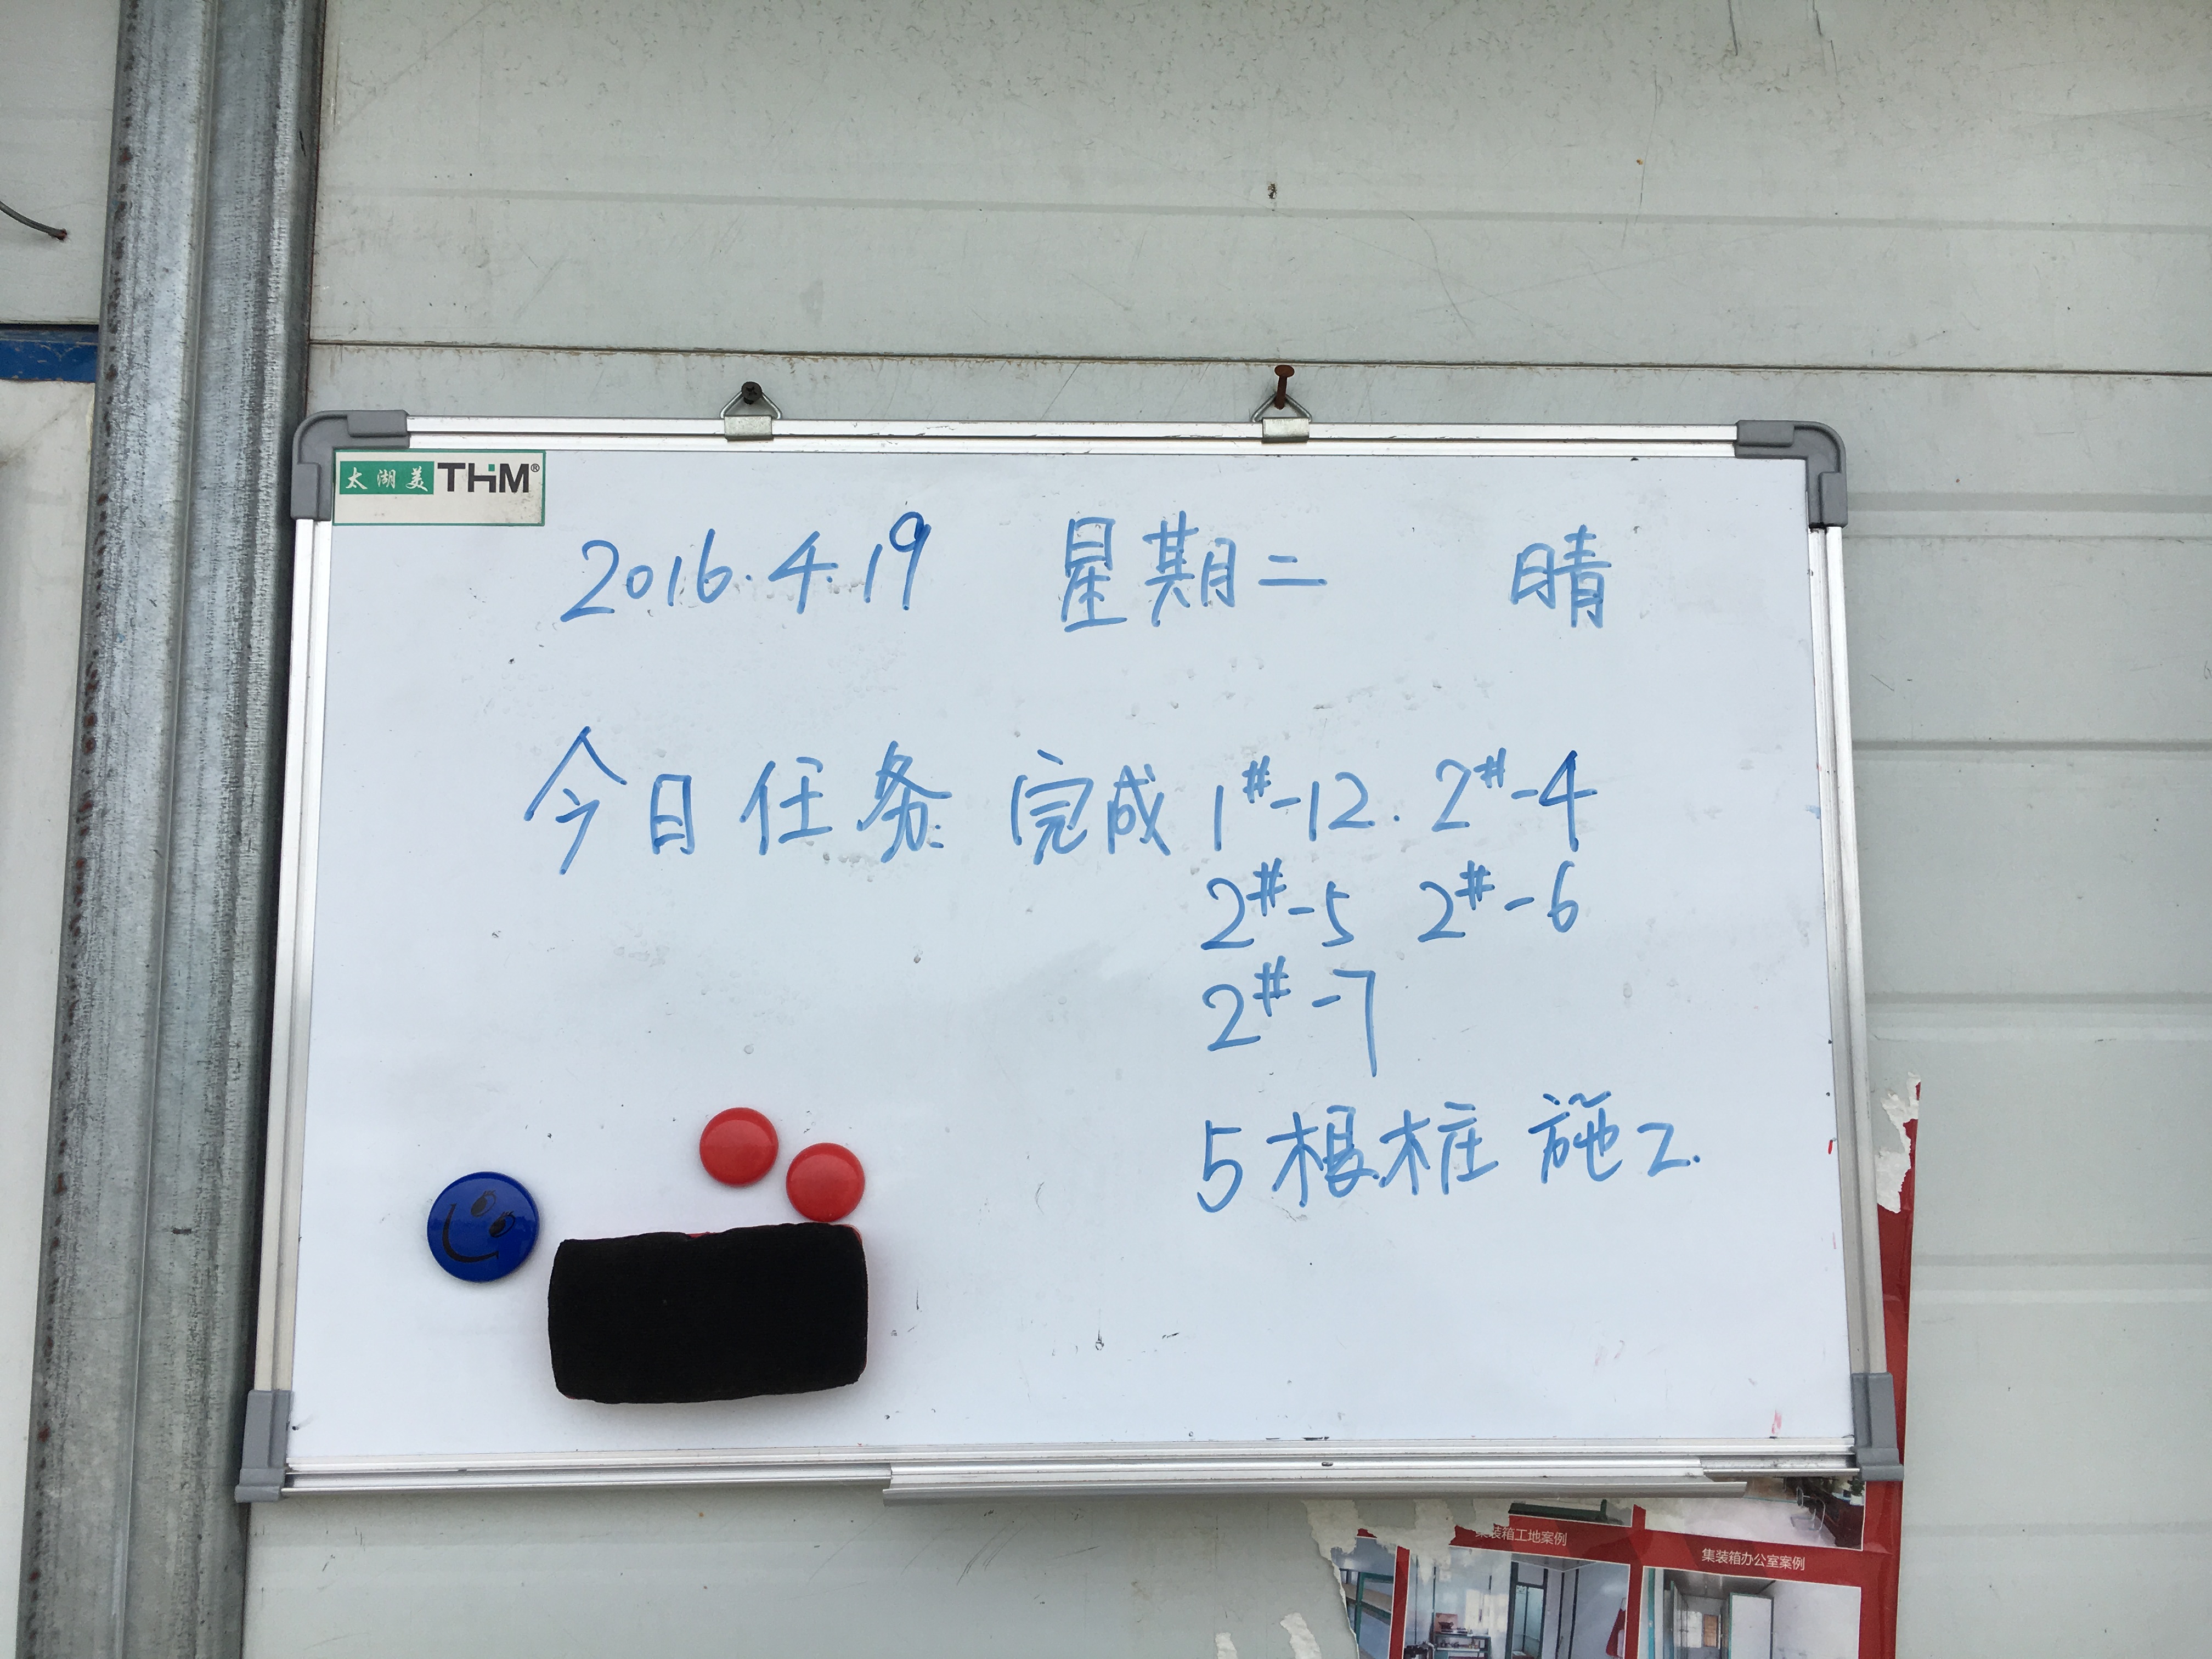 太湖美THM®
2016.4.19 星期二 晴
今日任务: 完成1#-12. 2#-4
2#-5 2#-6
2#-7
5根桩施工.
集装箱工地案例
集装箱办公室案例